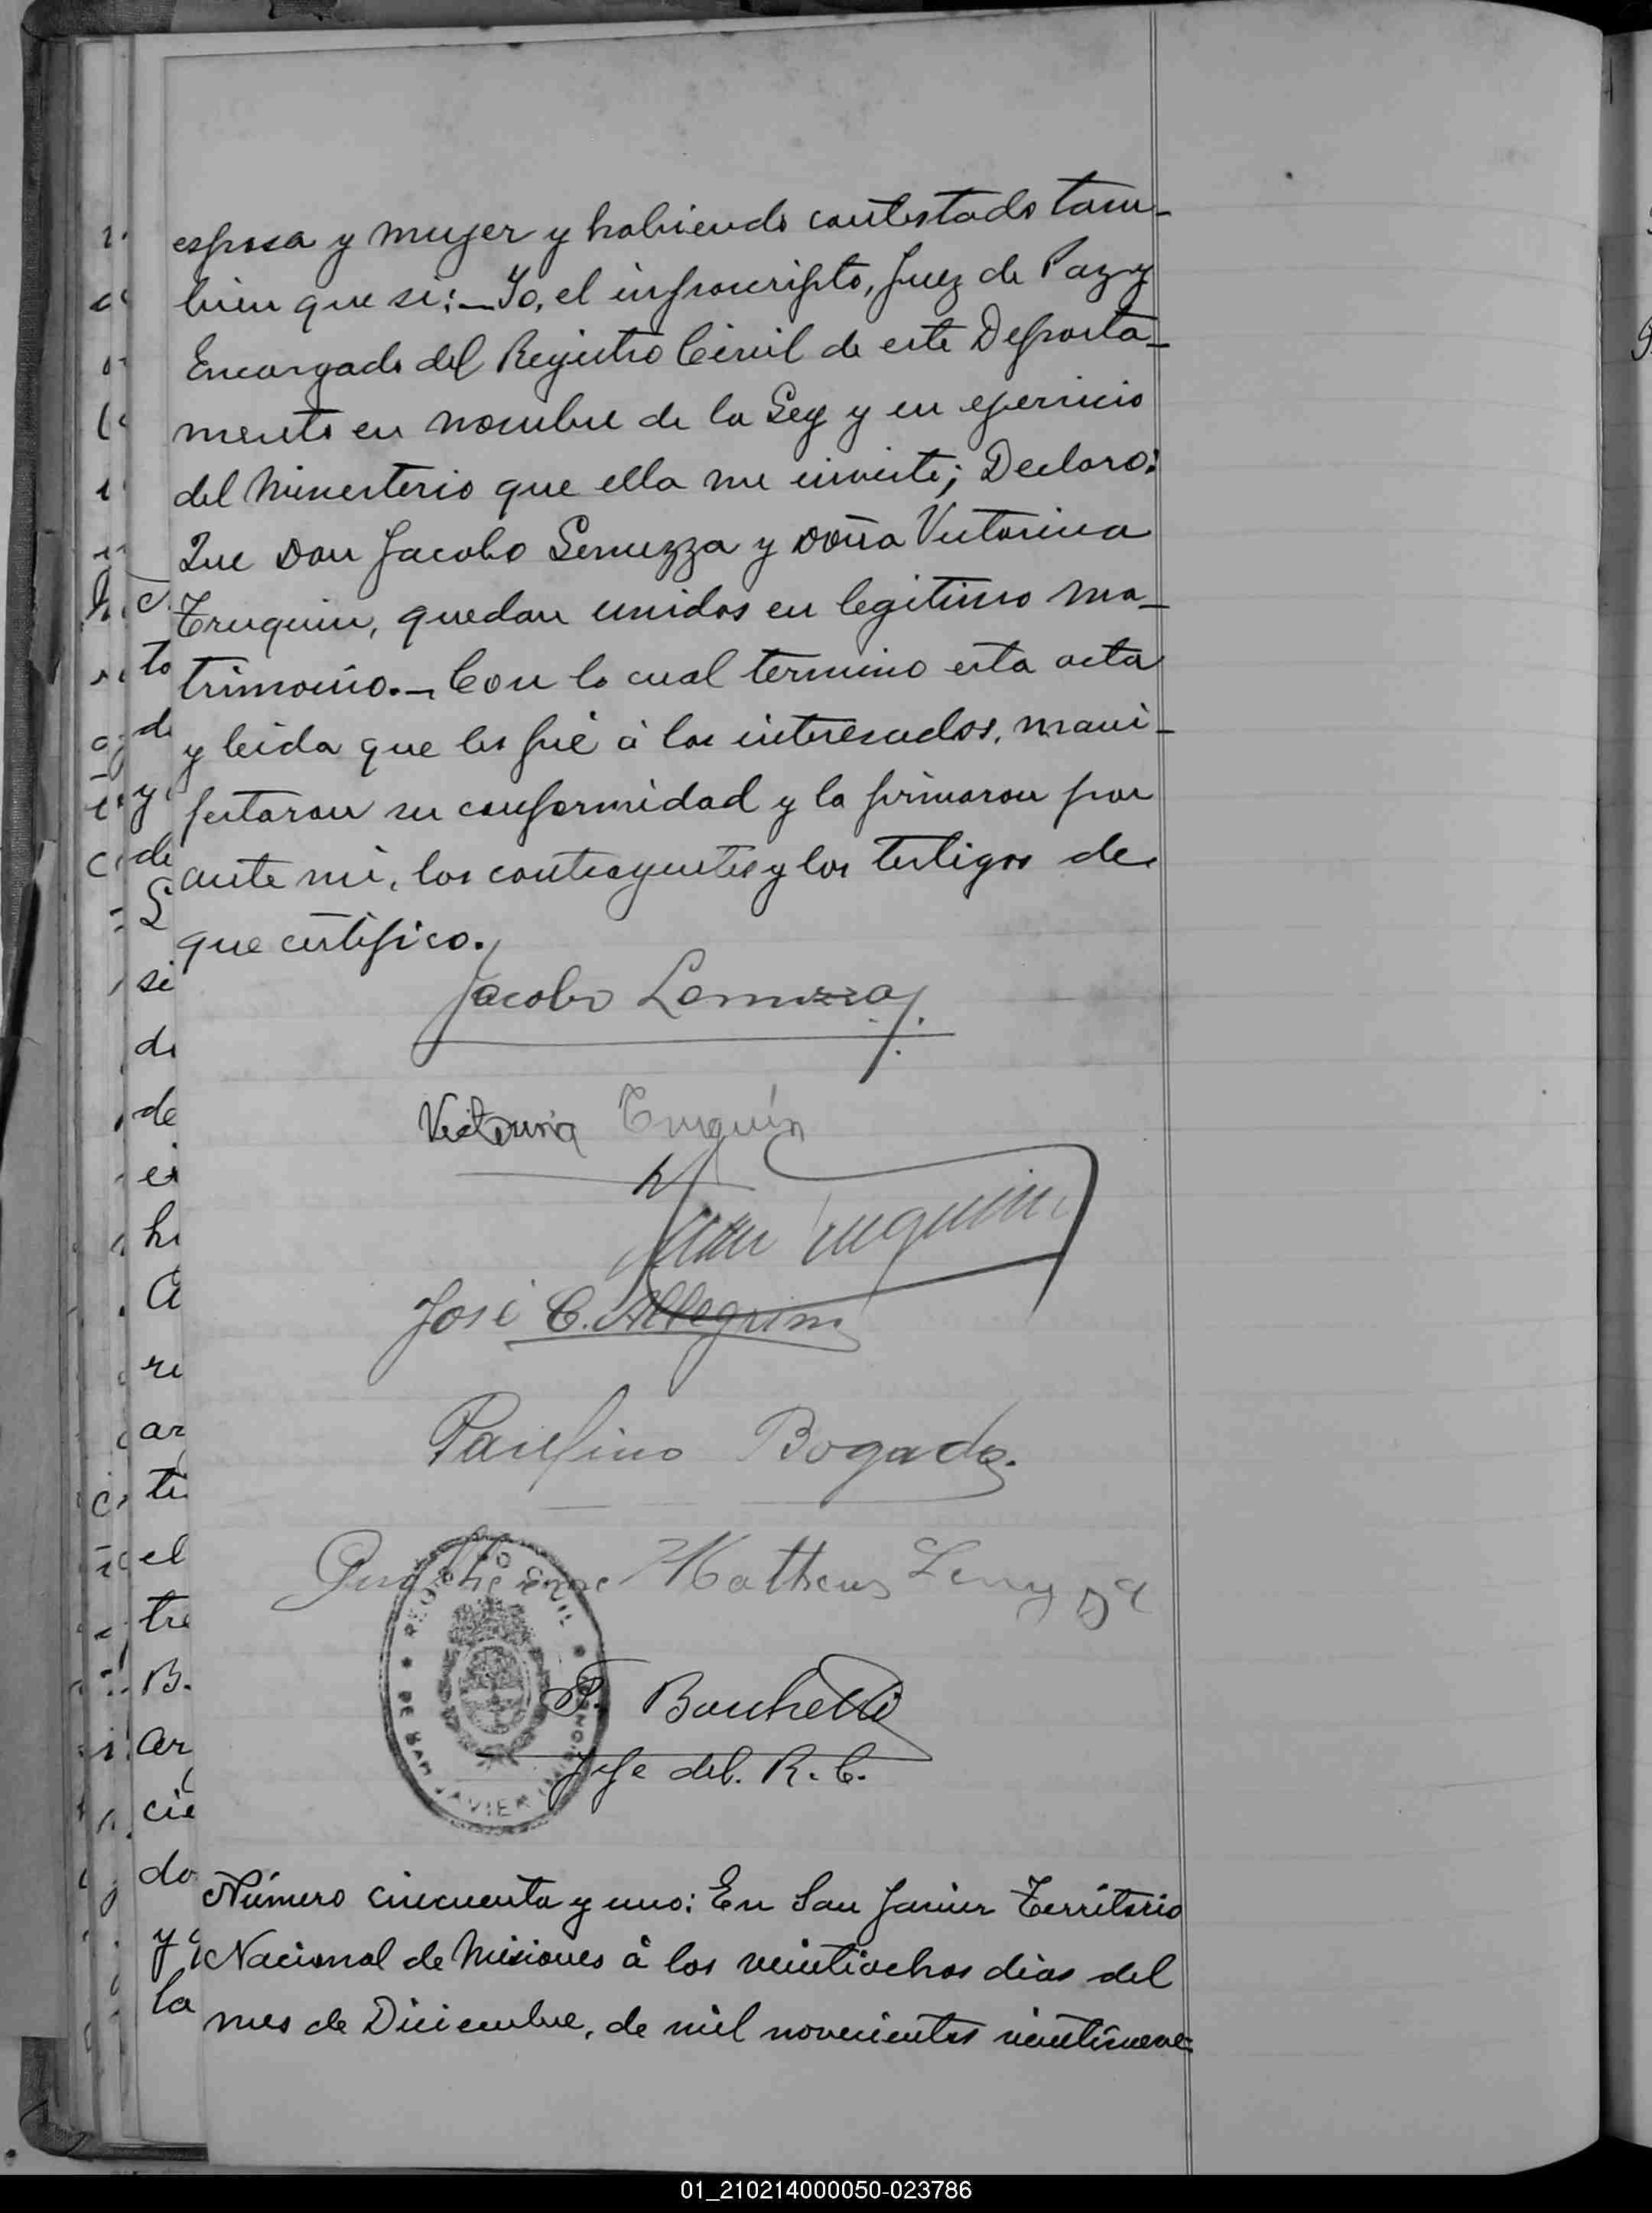 esposa y mujer y habiendo contestado tam-
bien que si:- Yo, el infrascripto, Juez de Paz y
Encargado del Registro Civil de este Departa-
mento en nombre de la Ley y en ejercicio
del Ministerio que ella me inviste; Declaro:
Que Don Jacobo Lemuzza y Doña Victorina
Truquin, quedan unidos en legitimo ma-
trimonio.- Con lo cual termino esta acta
y leida que les fué á los interesados, mani-
festaron su conformidad y la firmaron por
ante mi, los contrayentes y los testigos de
que certifico.
Jacobo Lemuzza
Victorina Truquin
Truquin
José C. Allegrini
Paulino Bogado.
Matheus
REGISTRO CIVIL
DE SAN JAVIER
Jefe del. R. C.
Número cincuenta y uno: En San Javier Territorio
Nacional de Misiones á los veintiochos dias del
mes de Diciembre, de mil novecientos veintinueve
c
to
d
y
de
L
si
di
de
ei
hi
a
re
ar
te
el
tre
B.
ar
cie
do
y
la
01_210214000050-023786